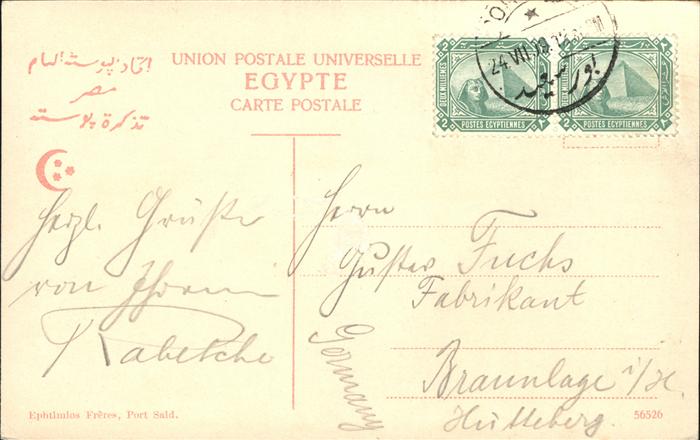 UNION POSTALE UNIVERSELLE
EGYPTE
CARTE POSTALE
اتحاد پوسته العام
مصر
تذكرة پوسته
DEUX MILLIEMES
2
POSTES EGYPTIENNES
DEUX MILLIEMES
2
POSTES EGYPTIENNES
24 VII
بور سعيد
Herzl. Grüße
von Ihrem
Herrn
Gustav Fuchs
Fabrikant
Braunlage i/H.
Hütteberg.
Germany
Ephtimios Frères, Port Said.
56526